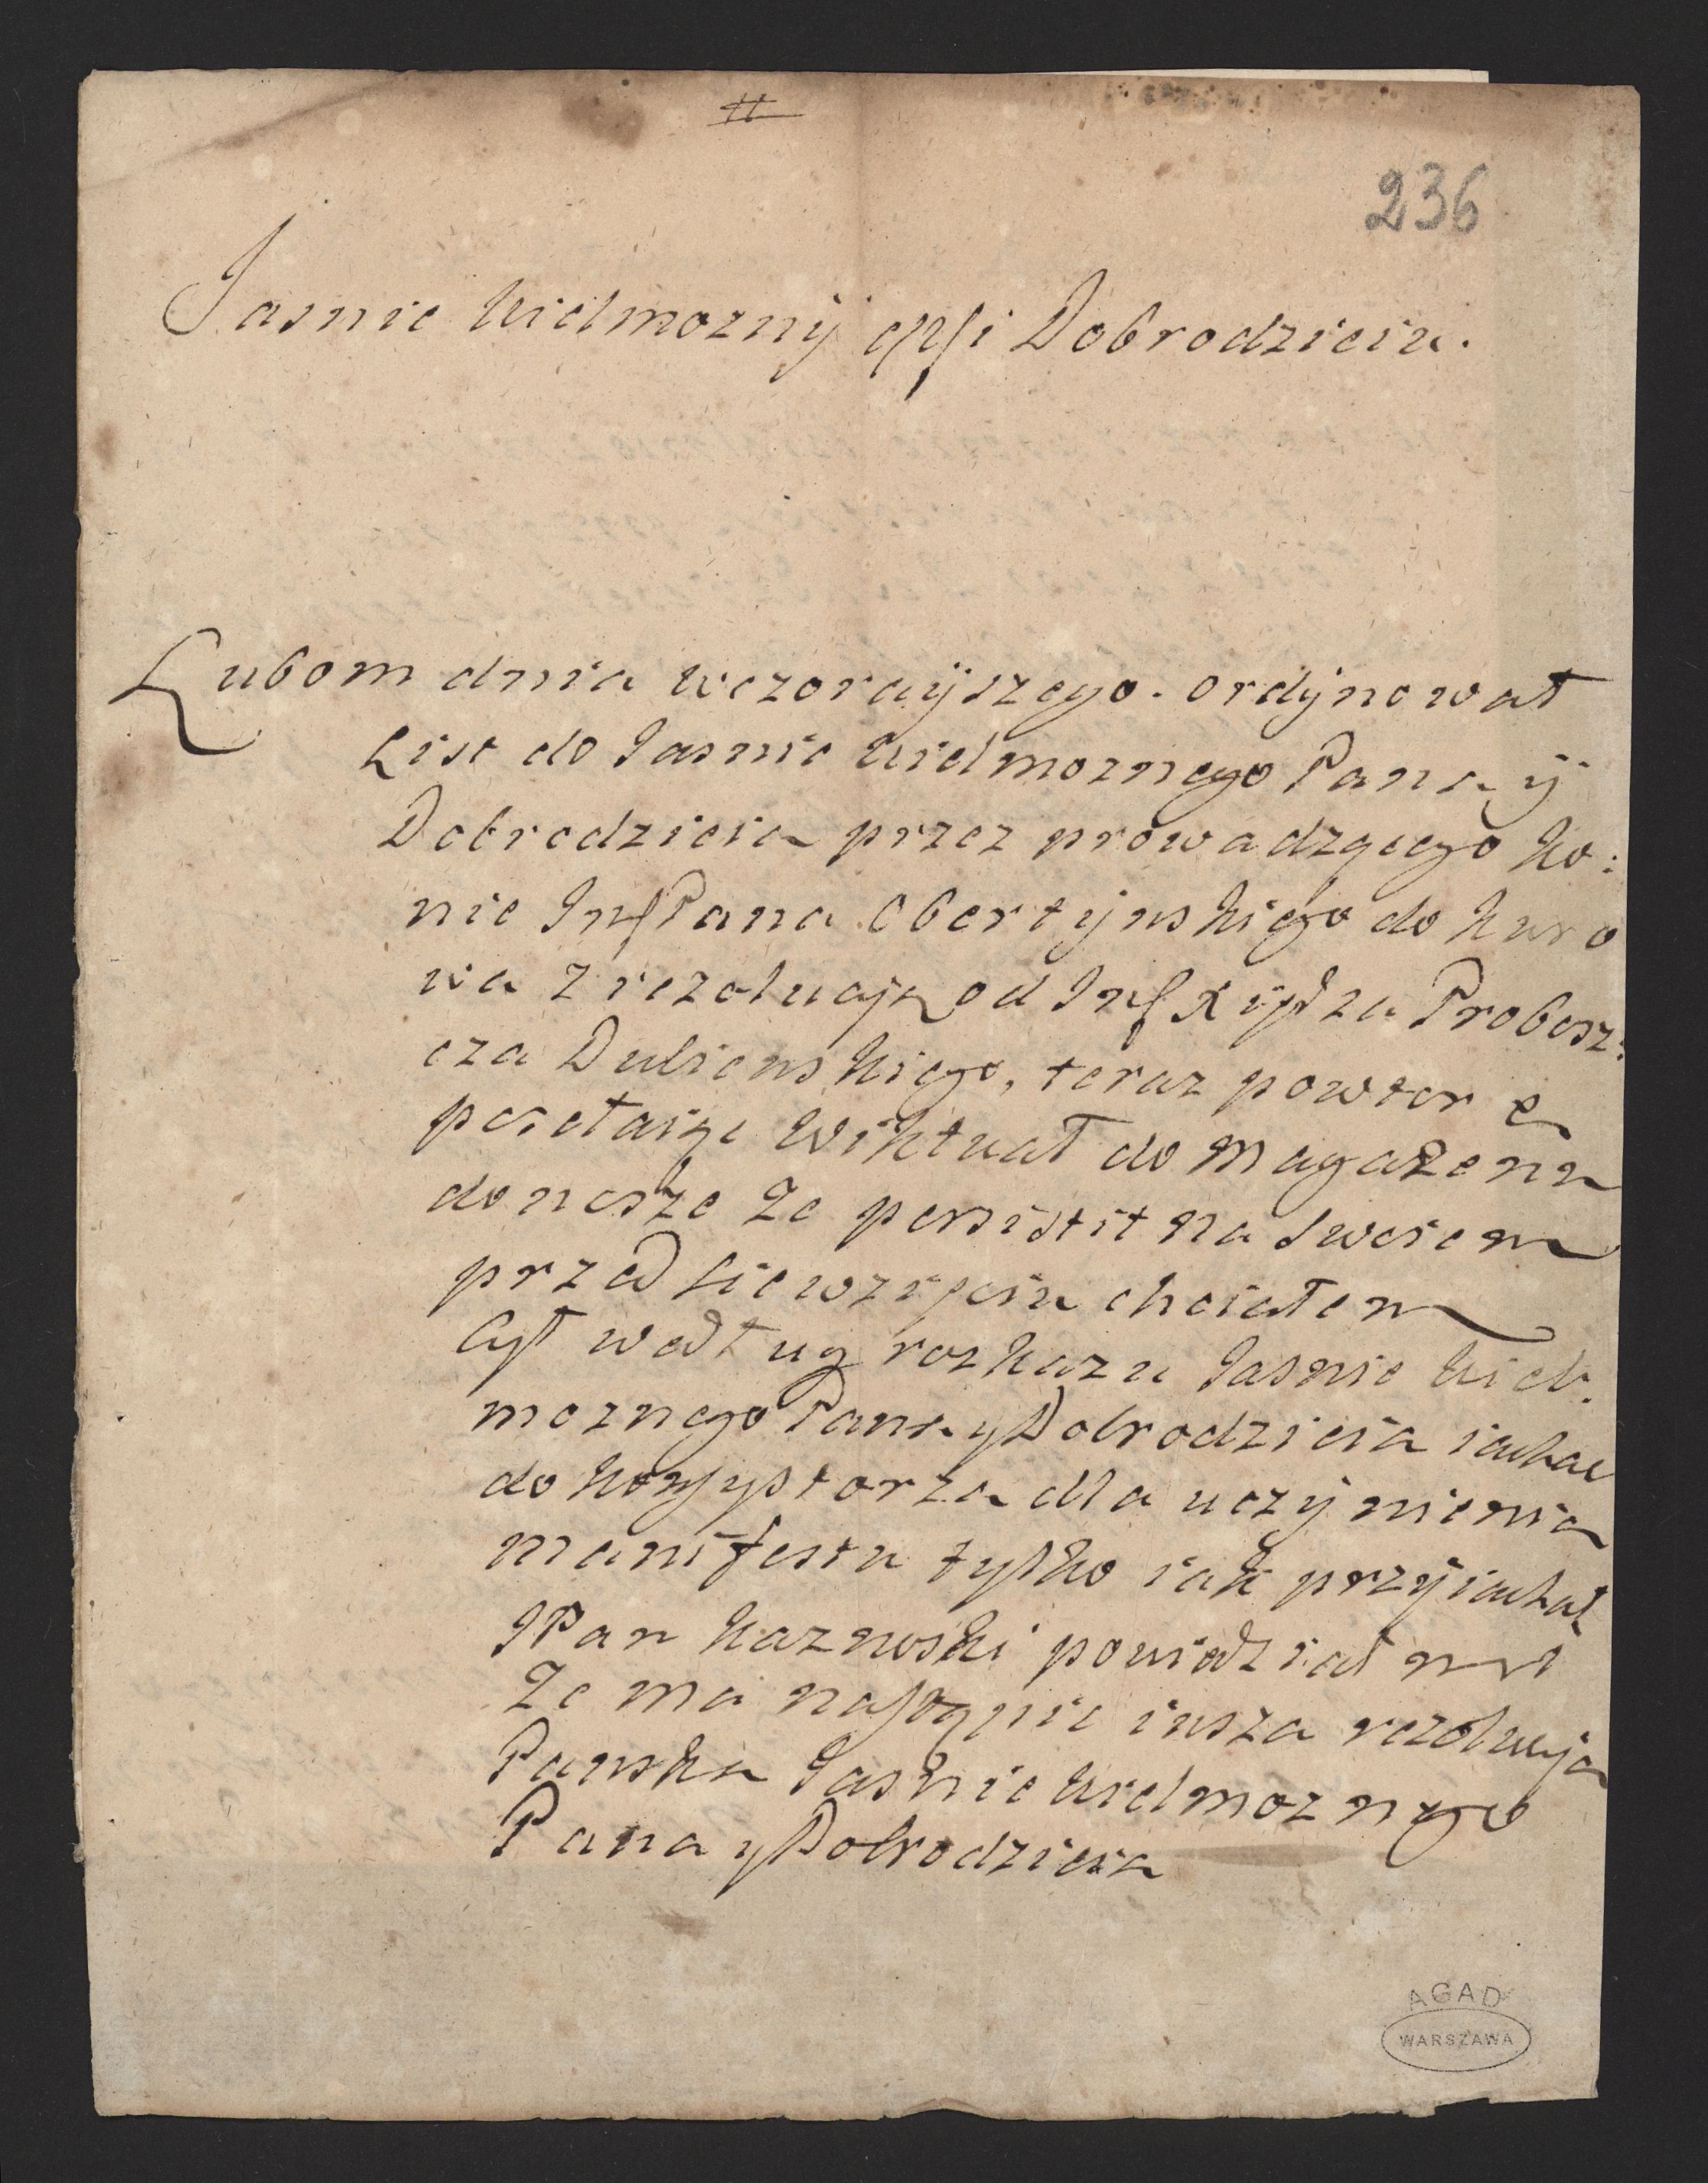 236
Jasnie Wielmozny Dobrodzieiu.
Lubom dnia wczorayszego. ordynował
List do Jasnie Wielmoznego Pana y
Dobrodzieia przez prowadzącego ko:
nie Pana Obertynskiego do Kuro
wa z rezolucją od Xiędza Probosz:
cza Dubienskiego, teraz powtore
posełaiąc Wiktuał do Magazenu
donosze ze persistit na swoiem
przedsiewzięciu chciałem
Cyt według rozkazu Jasnie Wiel:
moznego Pana y Dobrodzieia iachac
do konsystorza dla uczynienia
manifestu tylko iak przyiachał
JPan Kaznoski powiedział mi
ze ma nastąpic insza rezolucja
Panska Jasnie Wielmoznego
Pana y Dobrodzieia
AGAD
WARSZAWA